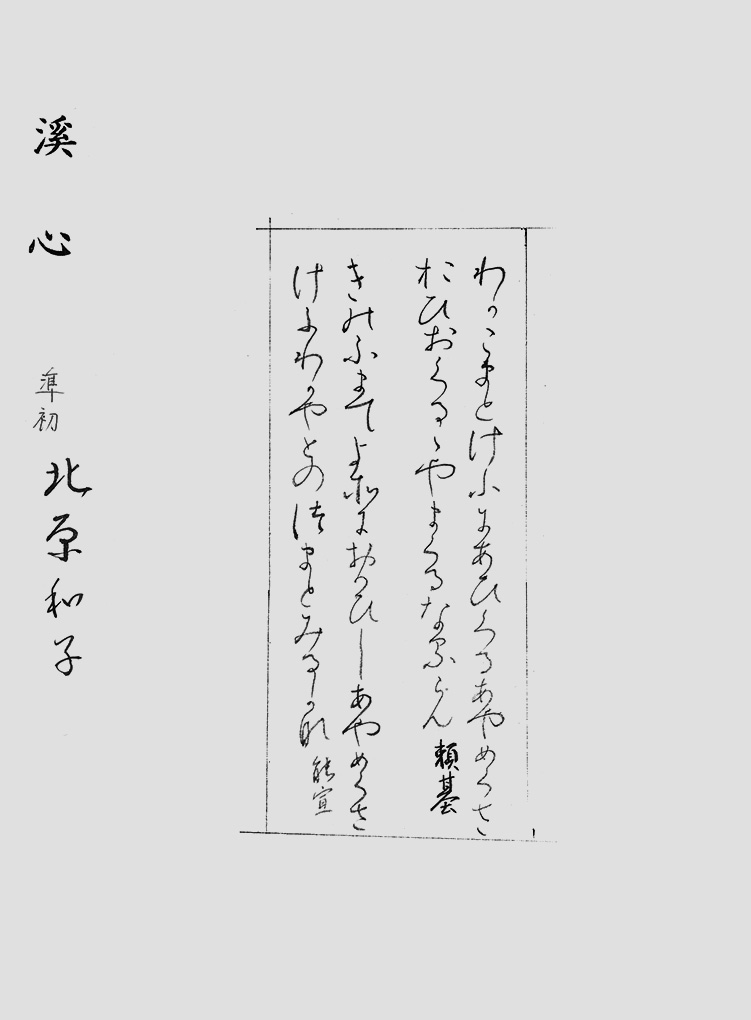 わかこまとけふにあひくるあやめくさ
おひおくるゝやまくるなるらん 頼基
きのふまてよそにおもひしあやめくさ
けふわかやとのつまとみるかな 能宣
溪心 準初 北原和子